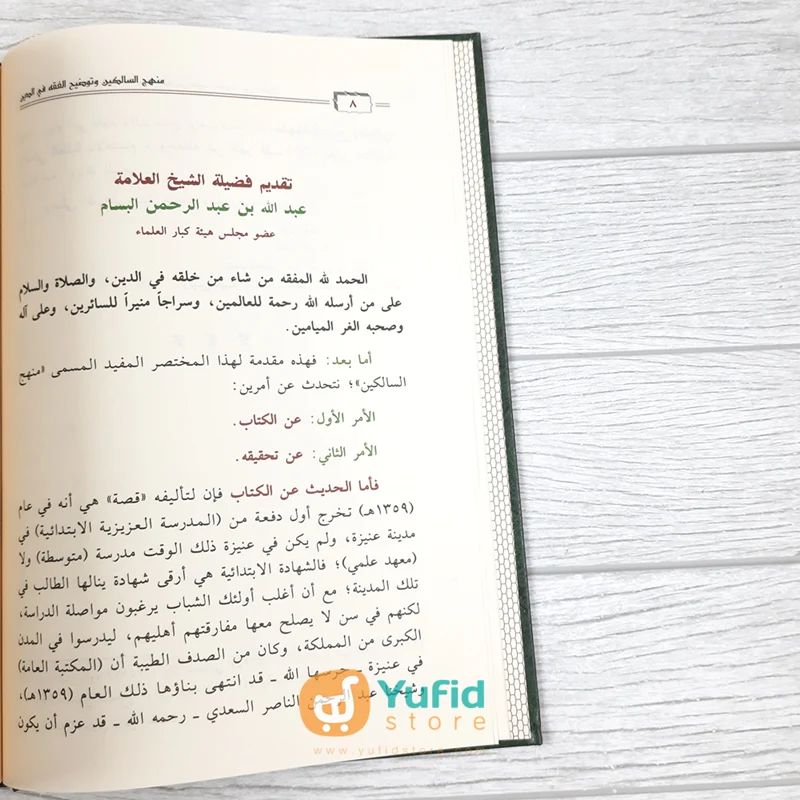 منهج السالكين وتوضيح الفقه في الدين
٨
تقديم فضيلة الشيخ العلامة
عبد الله بن عبد الرحمن البسام
عضو مجلس هيئة كبار العلماء
الحمد لله المفقه من شاء من خلقه في الدين، والصلاة والسلام
على من أرسله الله رحمة للعالمين، وسراجاً منيراً للسائرين، وعلى آله
وصحبه الغر الميامين.
أما بعد: فهذه مقدمة لهذا المختصر المفيد المسمى «منهج
السالكين»؛ نتحدث عن أمرين:
الأمر الأول: عن الكتاب.
الأمر الثاني: عن تحقيقه.
فأما الحديث عن الكتاب فإن لتأليفه «قصة» هي أنه في عام
(١٣٥٩هـ) تخرج أول دفعة من (المدرسة العزيزية الابتدائية) في
مدينة عنيزة، ولم يكن في عنيزة ذلك الوقت مدرسة (متوسطة) ولا
(معهد علمي)؛ فالشهادة الابتدائية هي أرقى شهادة ينالها الطالب في
تلك المدينة؛ مع أن أغلب أولئك الشباب يرغبون مواصلة الدراسة،
لكنهم في سن لا يصلح معها مفارقتهم أهليهم، ليدرسوا في المدن
الكبرى من المملكة، وكان من الصدف الطيبة أن (المكتبة العامة)
في عنيزة ـ حرسها الله ـ قد انتهى بناؤها ذلك العام (١٣٥٩هـ)،
وشيخنا عبد الرحمن الناصر السعدي ـ رحمه الله ـ قد عزم أن يكون
Yufid
store
www.yufidstore.com